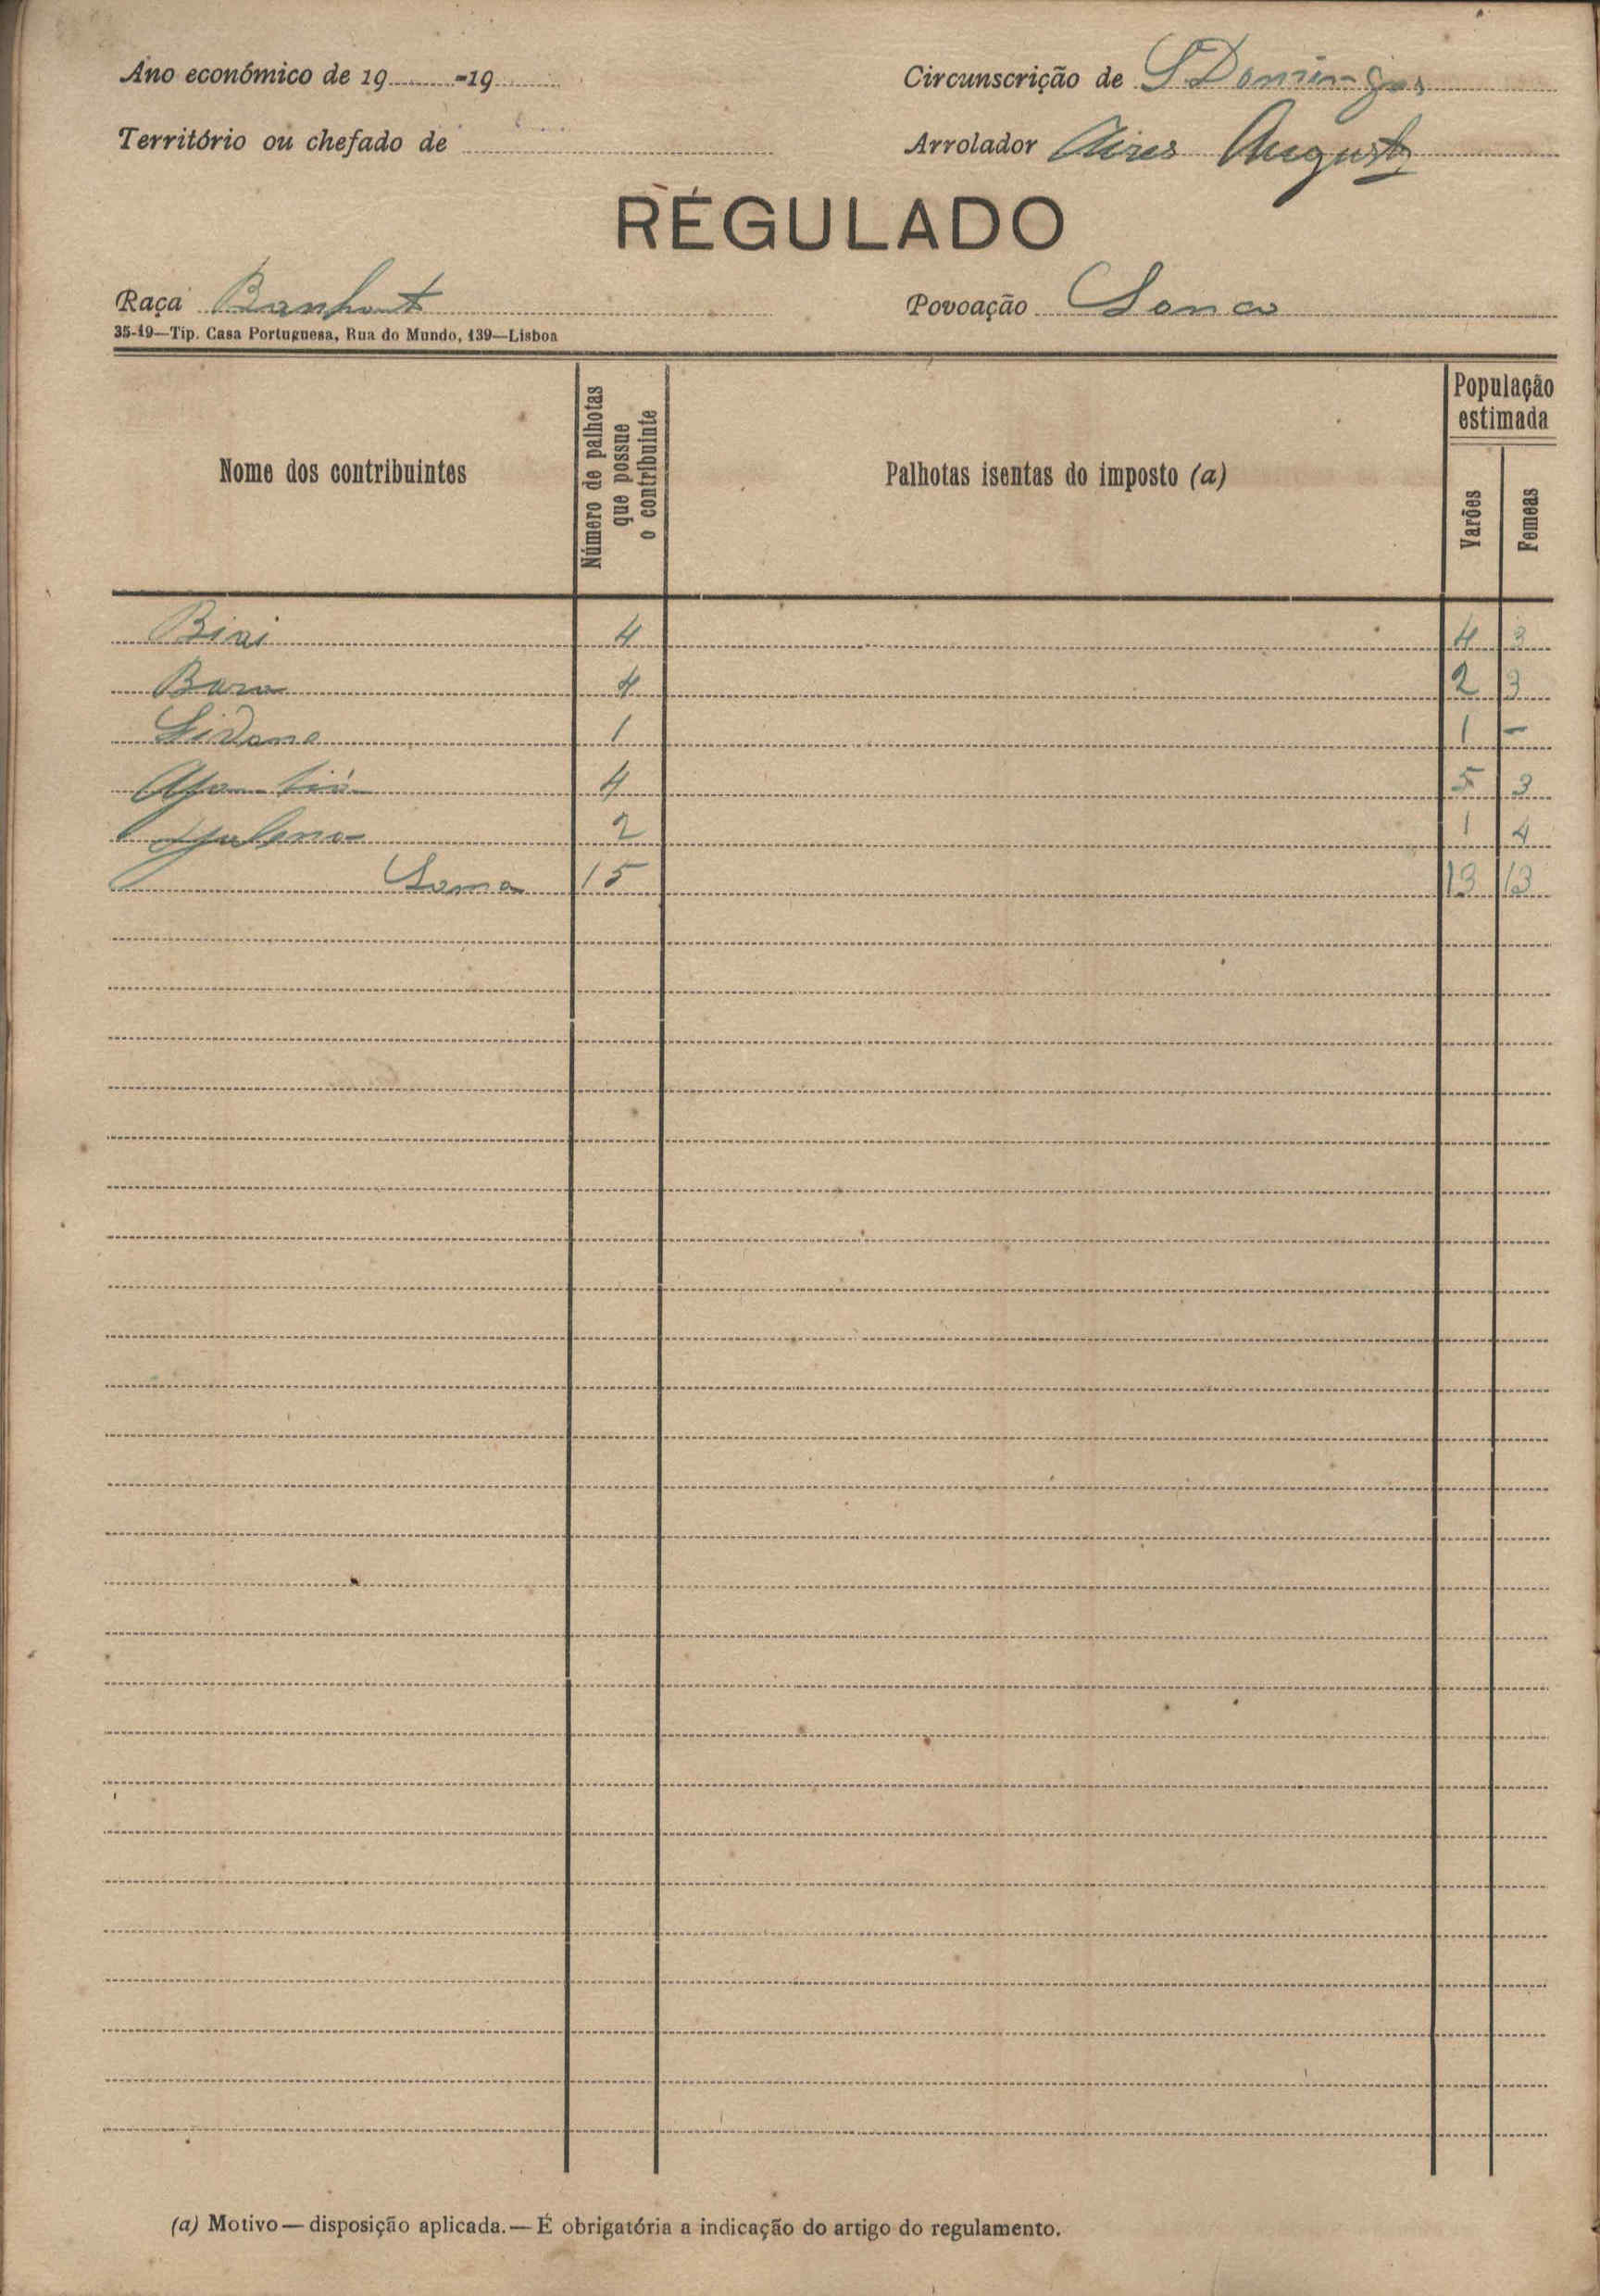 Ano económico de 19 -19
Circunscrição de S Domingos
Território ou chefado de
Arrolador Aires Augusto
RÉGULADO
Raça Banhont
Povoação Sonco
35-19—Tip. Casa Portuguesa, Rua do Mundo, 139—Lisboa
Nome dos contribuintes
Número de palhotas
que possue
o contribuinte
Palhotas isentas do imposto (a)
População
estimada
Varões
Femeas
Biai 4 4 3
Bara 4 2 3
Sidane 1 1 -
4 5 3
2 1 4
Soma 15 13 13
(a) Motivo — disposição aplicada. — É obrigatória a indicação do artigo do regulamento.